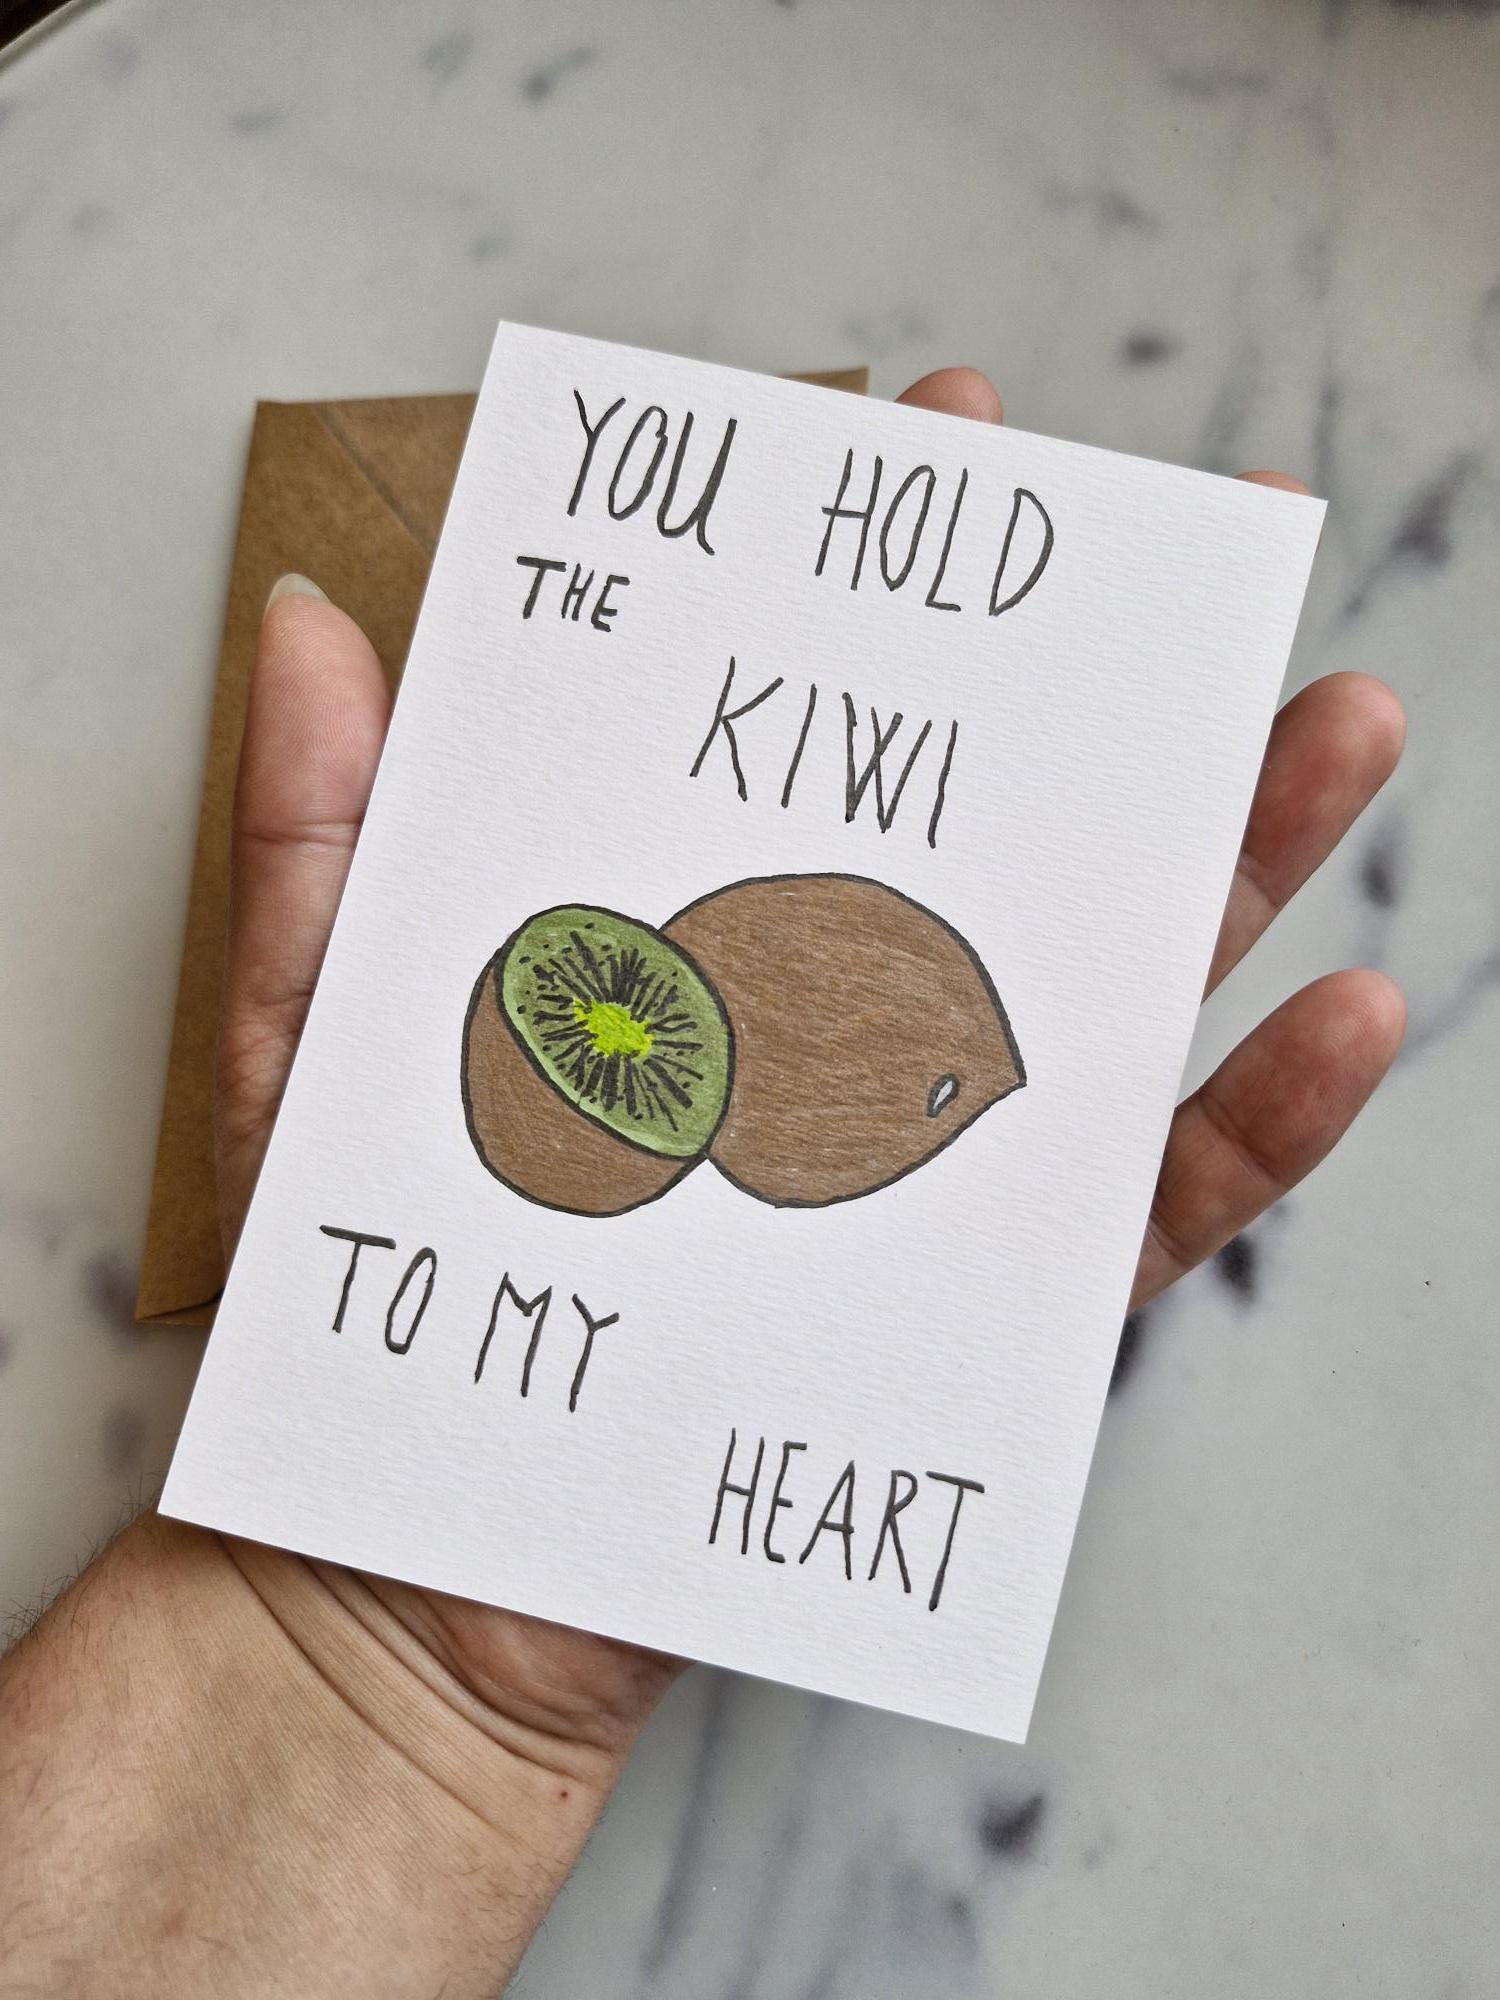 YOU HOLD
THE
KIWI
TO MY
HEART